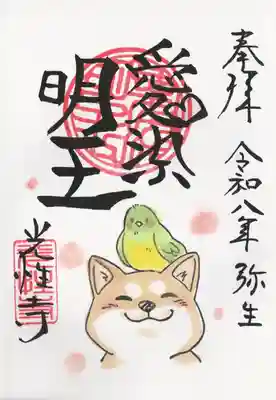 奉拝 令和八年 弥生
愛染
明王
光雅寺